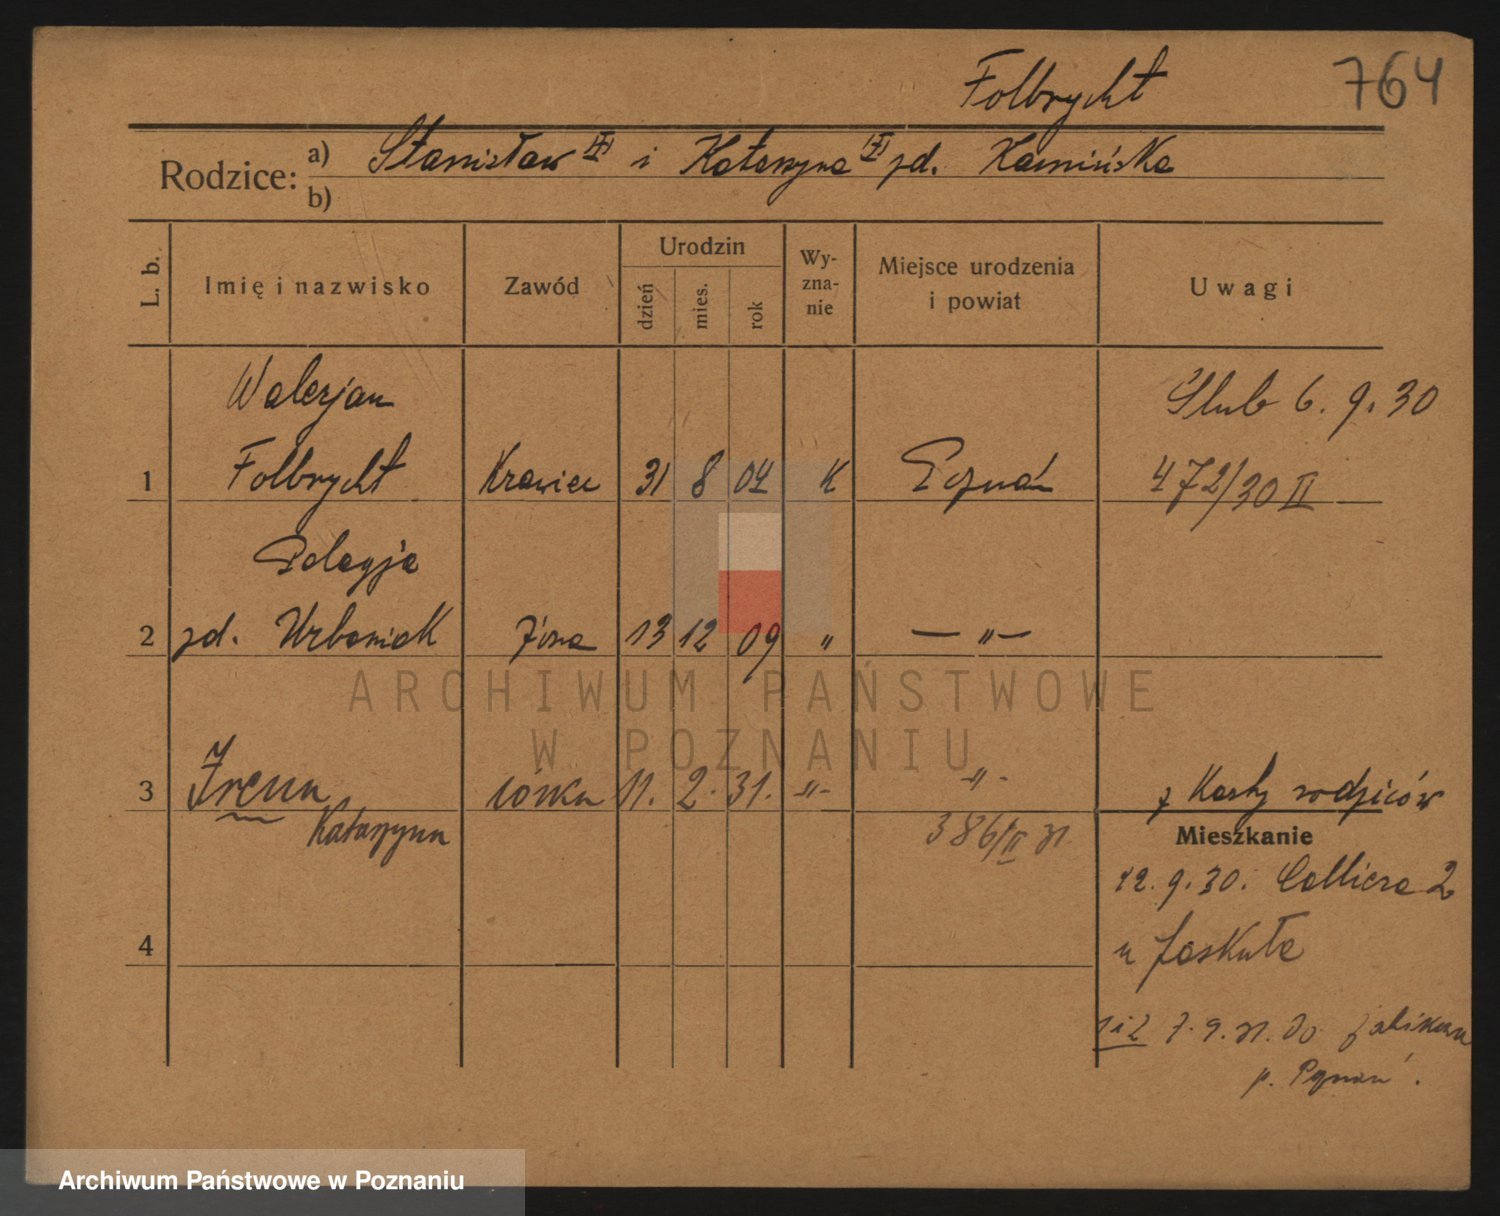 Folbrycht 764
Rodzice: a) Stanisław i Katarzyna zd. Kamińska
b)
L. b. Imię i nazwisko Zawód Urodzin dzień mies. rok Wyznanie Miejsce urodzenia i powiat Uwagi
Walerjan Ślub 6. 9. 30
1 Folbrycht Krawiec 31 8 04 K Poznań 472/30 II
Pelagja
2 zd. Urbaniak żona 13 12 09 " — " —
3 Irena córka 11. 2. 31. -"- -"- z Karty rodziców
Katarzyna 386/II 31.
Mieszkanie
12. 9. 30. Calliera 2
4 u Jaskuła
1 i 2 7. 9. 31. do Żabikowa
p. Poznań.
ARCHIWUM PAŃSTWOWE
W POZNANIU
Archiwum Państwowe w Poznaniu